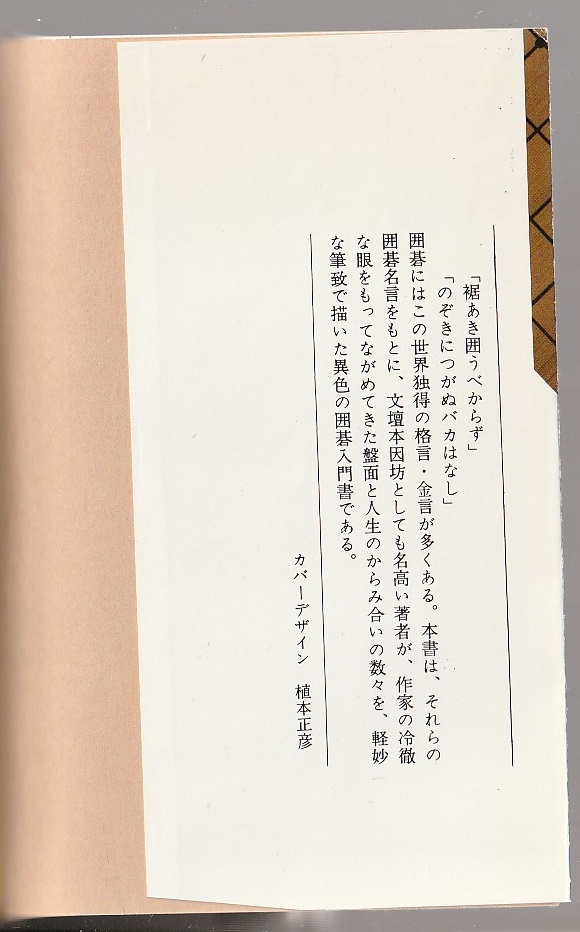 「裾あき囲うべからず」
「のぞきにつがぬバカはなし」
囲碁にはこの世界独得の格言・金言が多くある。本書は、それらの
囲碁名言をもとに、文壇本因坊としても名高い著者が、作家の冷徹
な眼をもってながめてきた盤面と人生のからみ合いの数々を、軽妙
な筆致で描いた異色の囲碁入門書である。
カバーデザイン 植本正彦